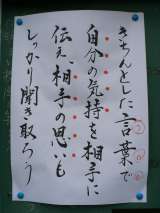 きちんとした言葉で
自分の気持を相手に
伝え、相手の思いも
しっかり聞き取ろう